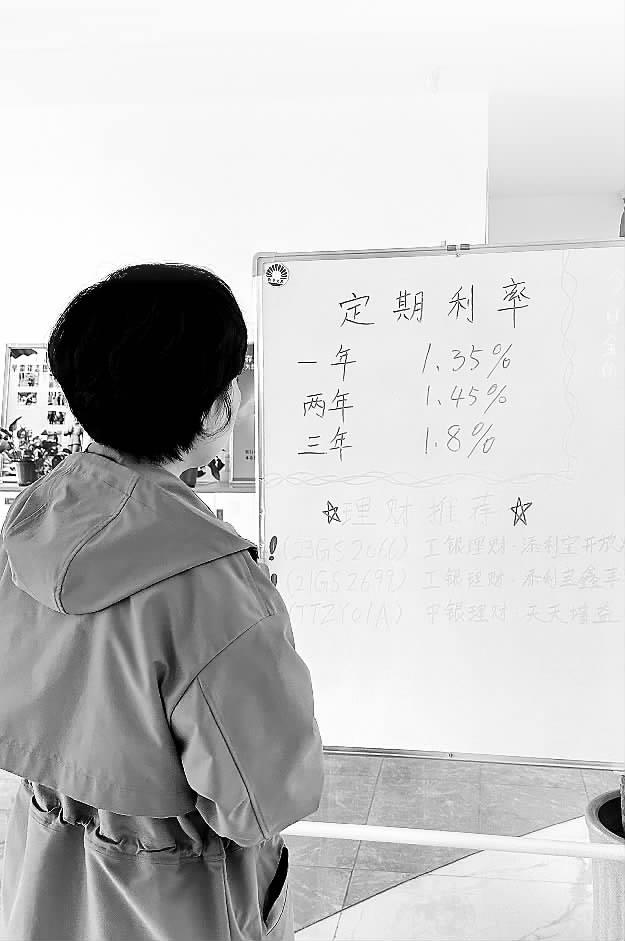 定期利率
一年 1.35%
两年 1.45%
三年 1.8%
☆理财推荐☆
(23GS2066) 工银理财·添利宝开放
(21GS2699) 工银理财·添利
(TTZY01A) 中银理财·天天增益